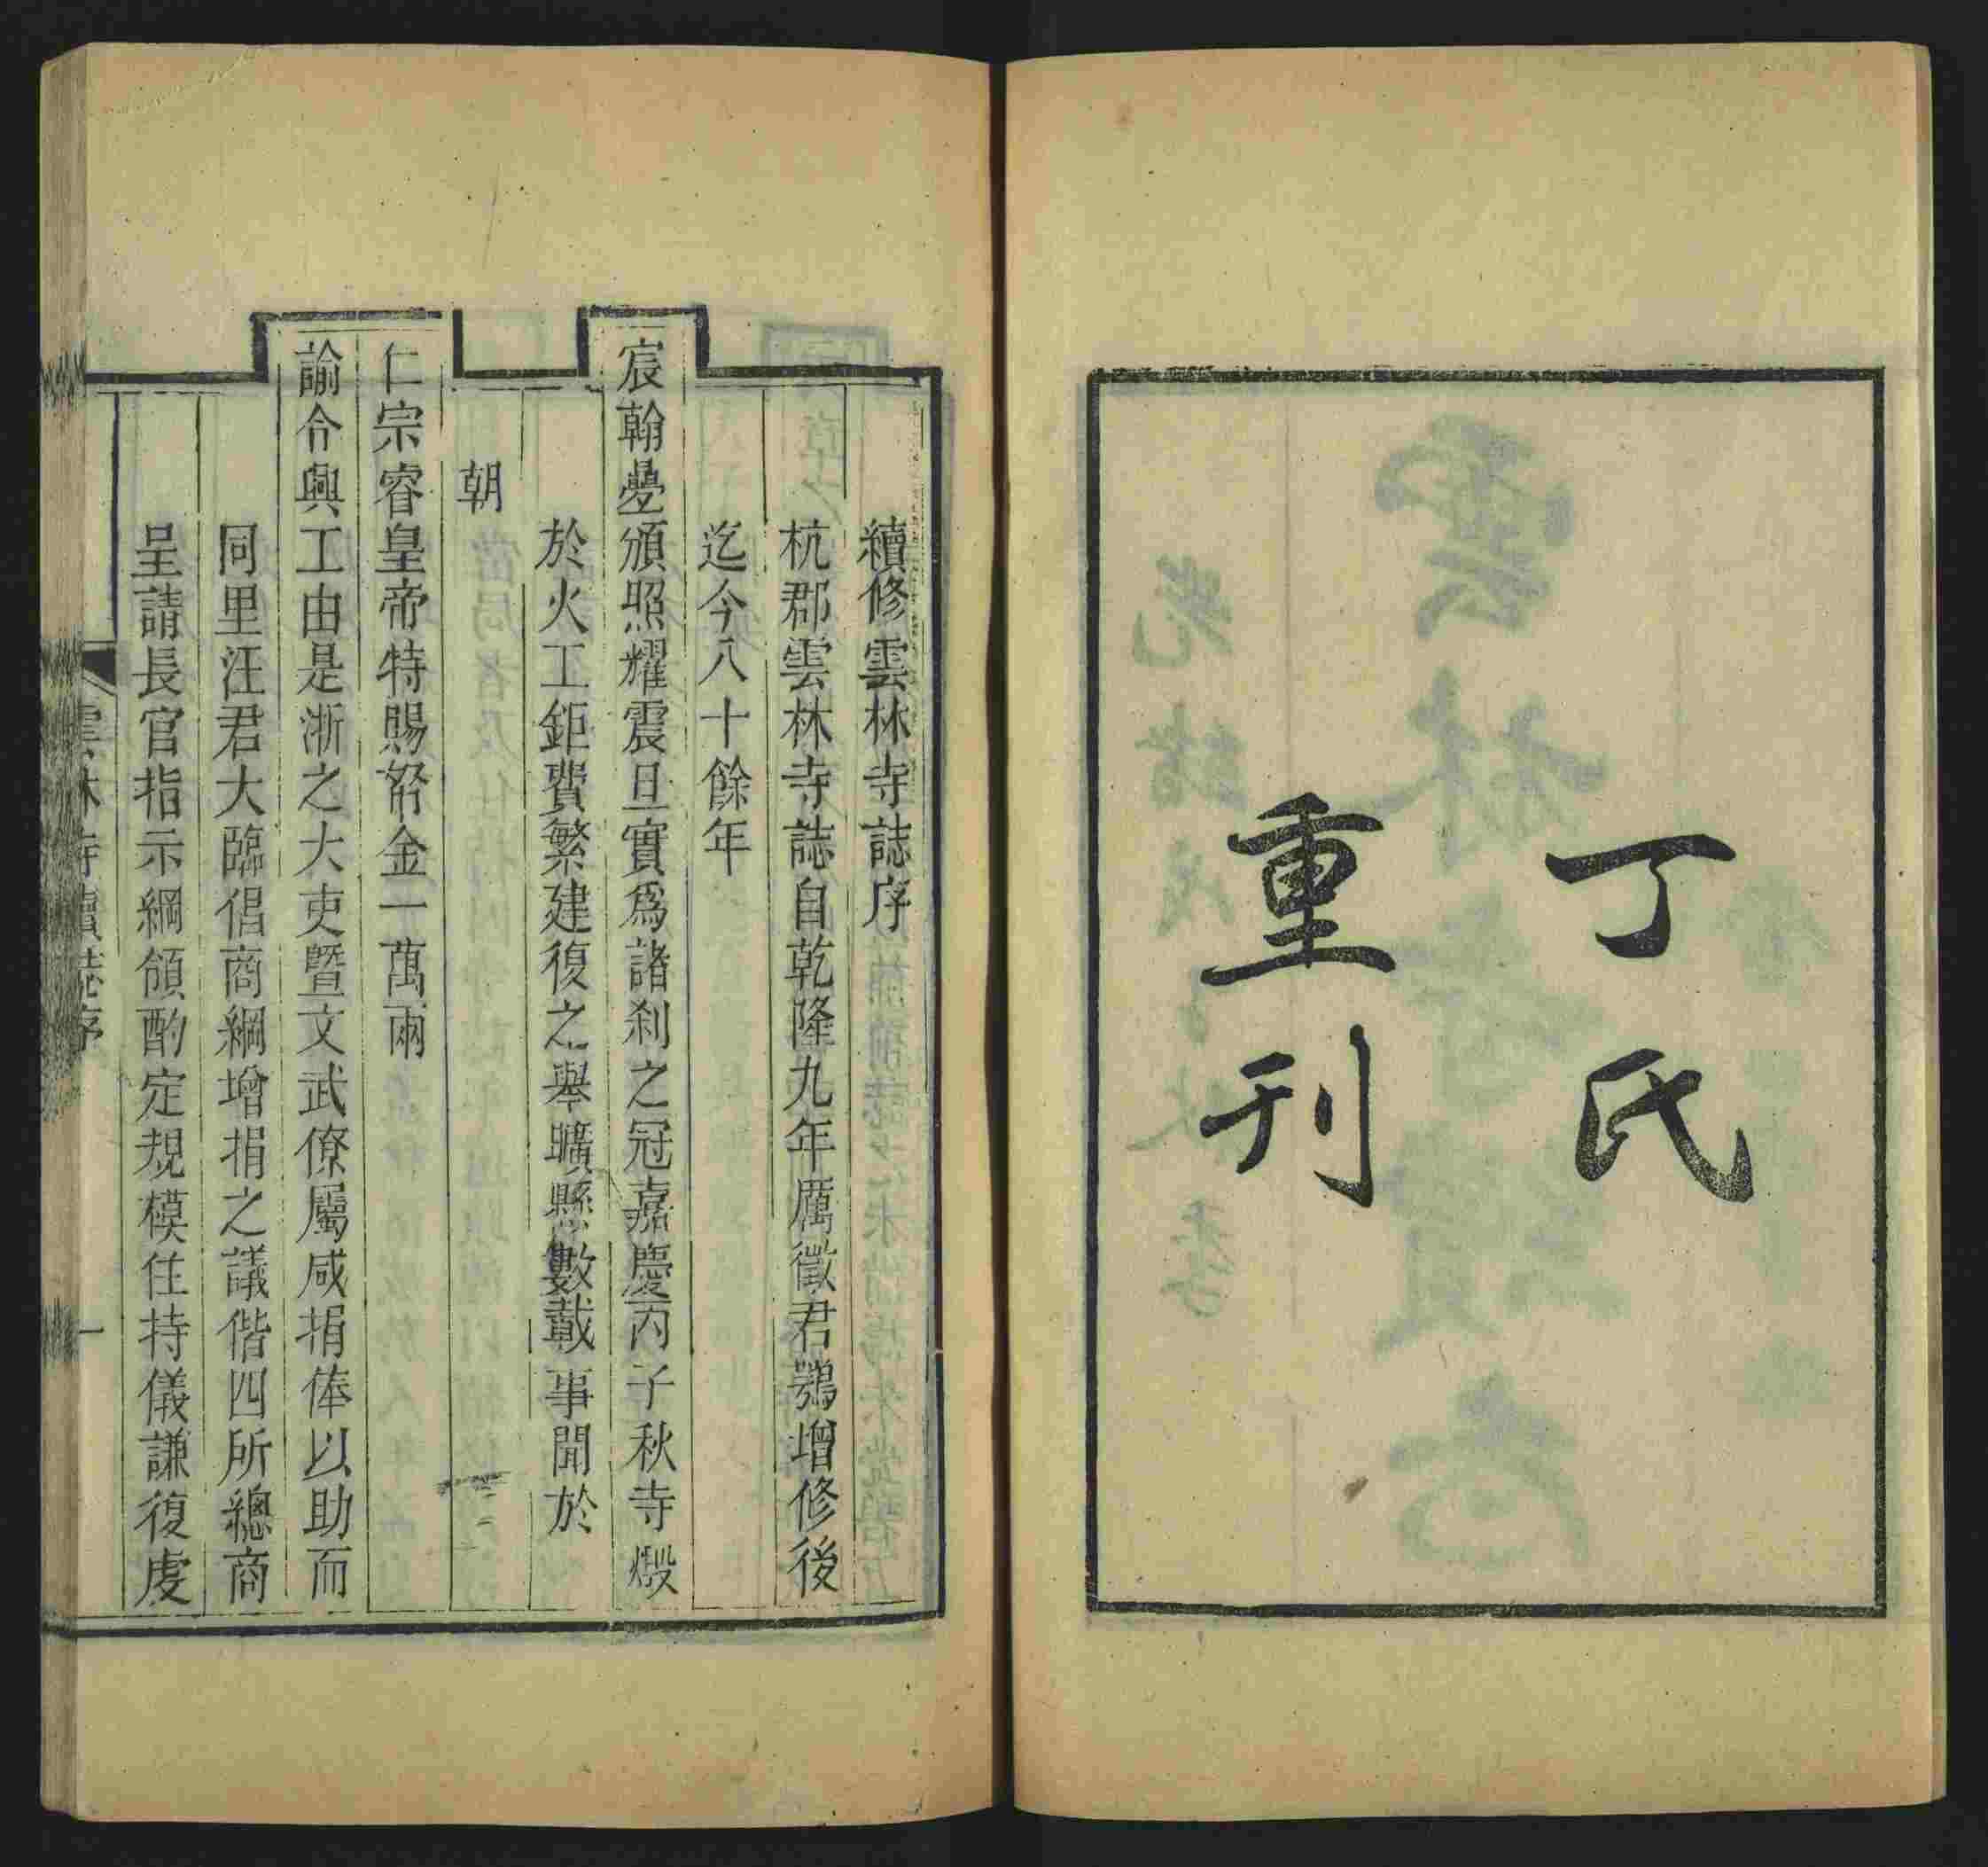 丁氏
重刊
續修雲林寺誌序
杭郡雲林寺誌自乾隆九年厲徵君鶚增修後
迄今八十餘年
宸翰疊頒照耀震旦實爲諸刹之冠嘉慶丙子秋寺燬
於火工鉅費繁建復之舉曠懸數載事聞於
朝
仁宗睿皇帝特賜帑金一萬兩
諭令興工由是浙之大吏暨文武僚屬咸捐俸以助而
同里汪君大臨倡商綱增捐之議偕四所總商
呈請長官指示綱領酌定規模住持儀謙復虔
雲林寺續誌序
一